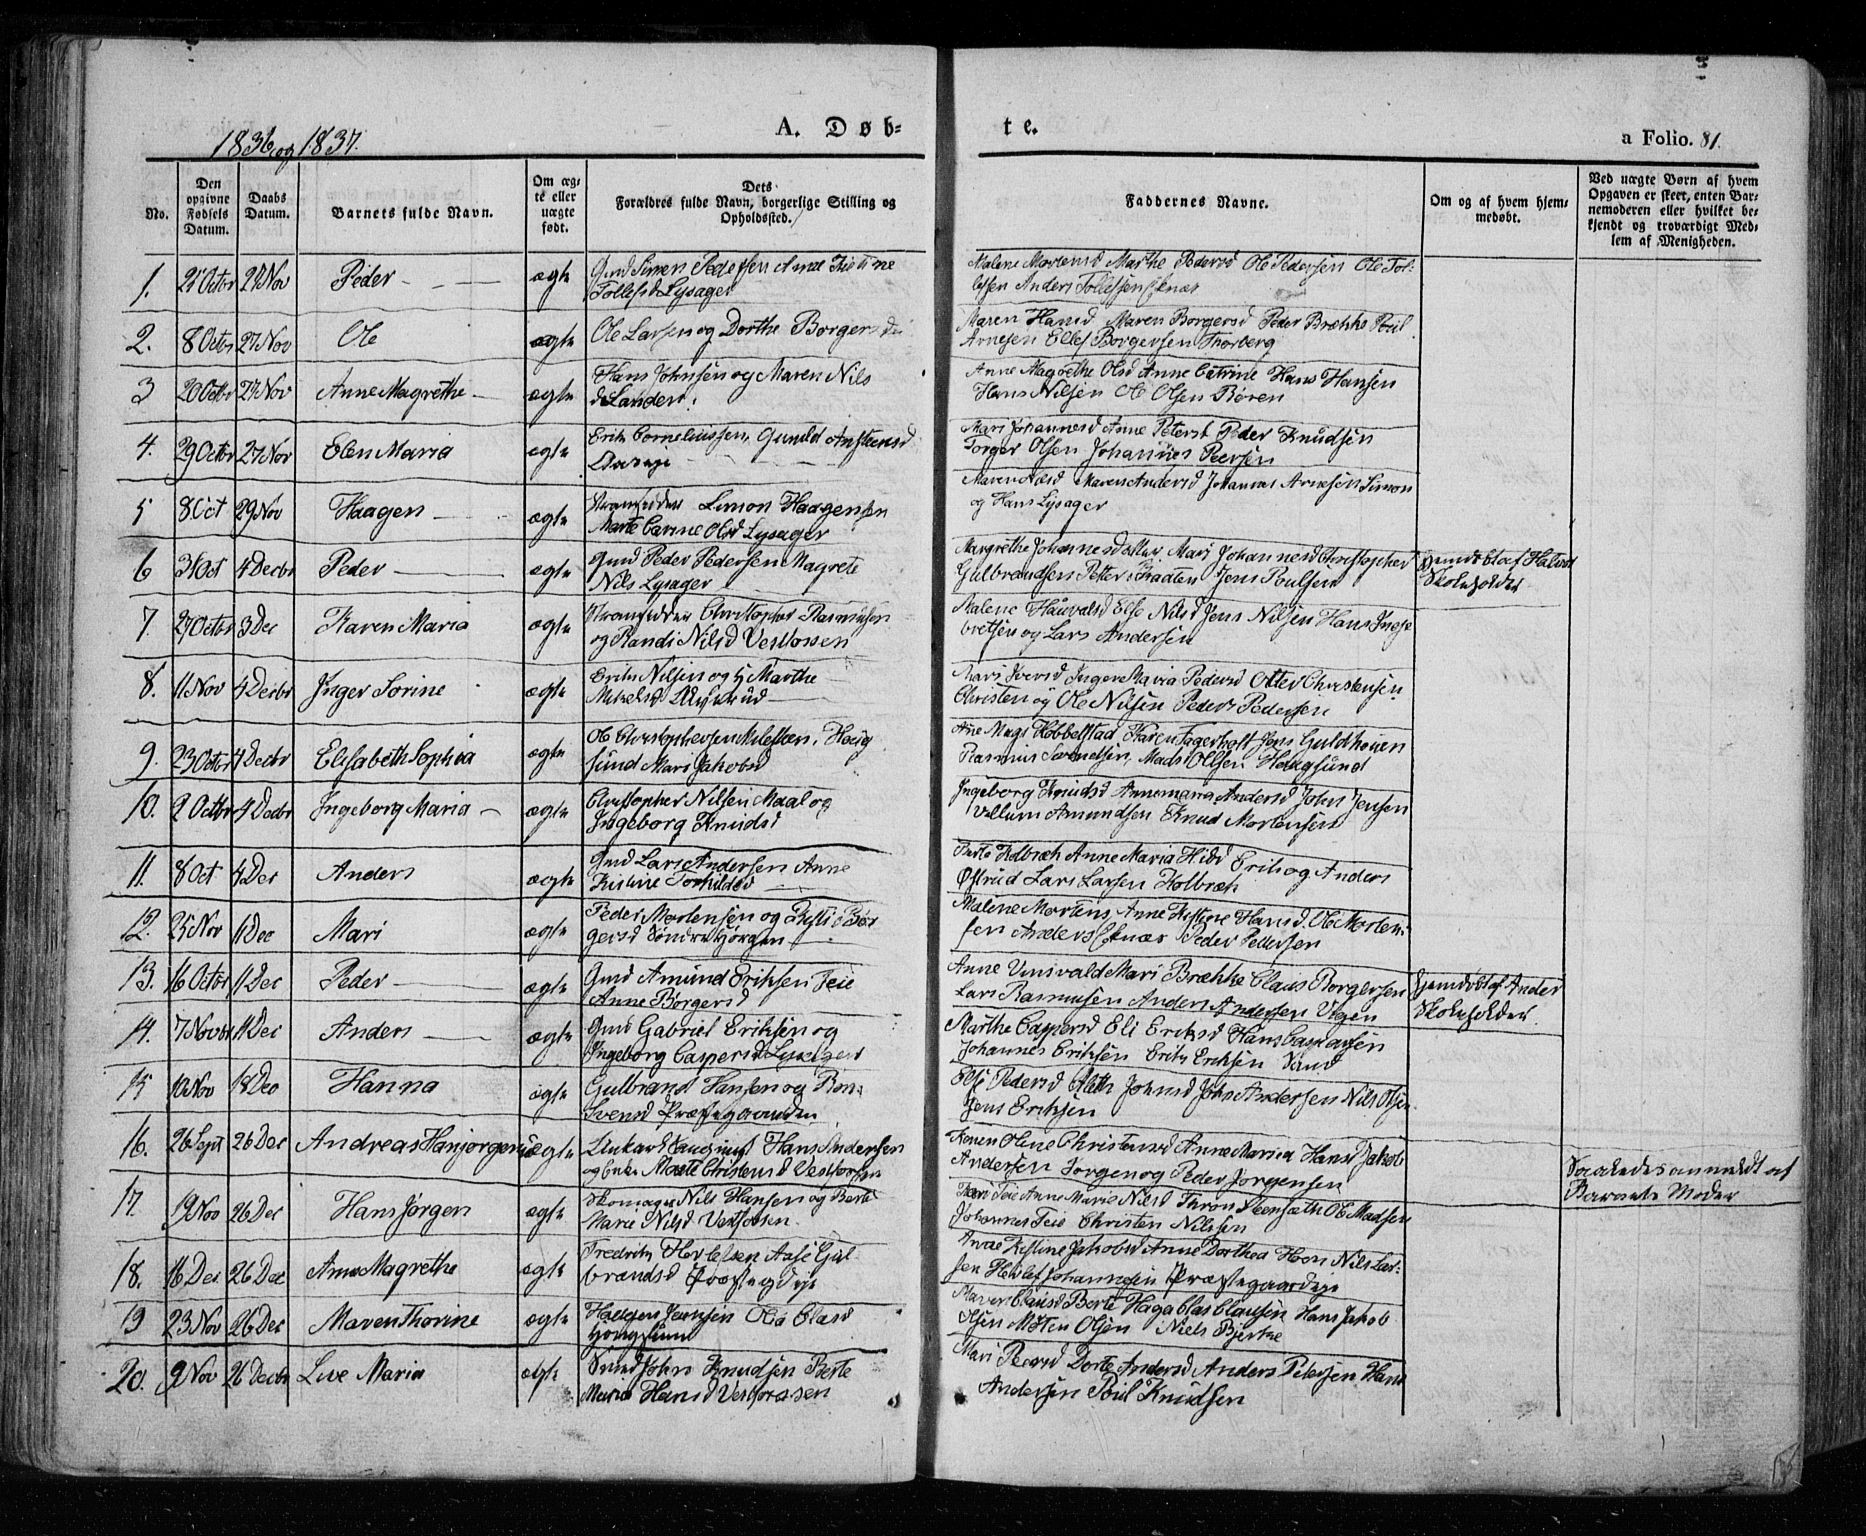 1836 og 1837.
A. Døb-
te.
a Folio. 81.
No.
Den
opgivne
Fødsels
Datum.
Daabs
Datum.
Barnets fulde Navn.
Om æg-
te eller
uægte
født.
Dets
Forældres fulde Navn, borgerlige Stilling og
Opholdssted.
Faddernes Navne.
Om og af hvem hjem-
medøbt.
Ved uægte Børn af hvem
Opgaven er skeet, enten Bar-
nemoderen eller hvilket be-
kjendt og troværdigt Med-
lem af Menigheden.
1. 21 Octbr 27 Nov Peder ægte Gmd Simen Pedersen Anne Kistine
Tollefsd Lysager
Malene Mortensd Marthe Pedersd Ole Pedersen Ole Tol-
lefsen Anders Tollefsen
2. 8 Octbr 27 Nov Ole ægte Ole Larsen og Dorthe Borgersd
Maren Hansd Maren Borgersd Peder Brække Poul
Arnesen Ellef Borgersen Thorberg
3 20 Octbr 27 Nov Anne Magrethe ægte Hans Johnsen og Maren Nils
d Lander.
Anne Magrethe Olsd Anne Catrine Hans Hansen
Hans Nilsen Ole Olsen Børen
4. 29 Octbr 27 Nov Elen Maria ægte Erik Corneliussen, Gunild Anstensd
Mari Johannesd Anne Petersd Peder Knudsen
Torger Olsen Johannes Peersen
5 8 Oct 29 Nov Haagen ægte Strandsidder Simon Haagensen
Marte Carine Olsd Lysager
Maren Andersd Johannes Arnesen Simon
og Hans Lysager
6 31 Oct 4 Decbr Peder ægte Gmd Peder Pedersen Magrete
Nils Lysager
Margrethe Johannesd Mari Johannesd Christopher
Gulbrandsen Petter Braaten Jens Poulsen
Hjemdøbt af Halvor
Skoleholder
7. 27 Octbr 3 Dec Karen Maria ægte Strandsidder Christopher Rasmusen
og Randi Nilsd Vestfossen
Malene Hauvalsd Else Nilsd Jens Nilsen Hans Inge
bretsen og Lars Andersen
8. 11 Nov 4 Decbr Inger Sorine ægte Erik Nilsen og Marthe
Mikelsd
Mari Iversd Inger Maria Pedersd Otter Christensen
Christen og Ole Nilsen Peder Pedersen
9. 23 Octbr 4 Decbr Elisabeth Sophia ægte Ole Christophersen Houg
sund Mari Jakobsd
Ane Magr Hobbelstad Karen Fagerholt Jens Guldhouen
Rasmus Svendsen, Mads Olsen Hougsund
10. 2 Octbr 4 Decbr Ingeborg Maria ægte Christopher Nilsen Maal og
Ingeborg Knudsd
Ingeborg Knudsd Annemaria Andersd John Jensen
Vellum Amundsen Knud Mortensen
11. 8 Oct 4 Dec Anders ægte Gmd Lars Andersen Anne
Kistine Torkildsd
Berte Holbræk Anne Maria Erik og Anders
Østrud Lars Larsen Holbræk
12. 25 Nov 11 Dec Mari ægte Peder Mortensen og Kisti Bør
gersd Søndre Hjørgen
Malene Mortens, Anne Kistine Hansd. Ole Morten-
sen Anders Peder Pedersen
13. 16 Octbr 11 Dec Peder ægte Gmd Amund Eriksen Teie
Anne Borgersd
Anne Unsvald Mari Brække Claus Borgersen
Lars Rasmusen Anders Andersen Vegen
Hjemdøbt af Anders
Skoleholder
14. 7 Novbr 11 Dec Anders ægte Gmd Gabriel Eriksen og
Ingeborg Caspersd Lysager
Marthe Caspersd Eli Eriksd Hans Caspersen
Johannes Eriksen Erik Eriksen Sand
15 10 Nov 18 Dec Hanna ægte Gulbrand Hansen og
Svensd Præstegaarden
Else Pedersd Johnsd John Andersen Nils Olsen
Jens Eriksen
16. 26 Sept 26 Dec Andreas Hanjørgen uægte Hans Andersen
og Marte Christensd Vestfossen
Karen Oline Christensd Anne Maria Hansd Jakob
Andersen Jørgen og Peder Jørgensen
Saaledes anmeldt af
Barnets Moder
17. 19 Nov 26 Dec Hans Jørgen ægte Skomager Nils Hansen og Berte
Marie Nilsd Vestfossen.
Kari Teie Anne Marie Nilsd Thron Steensæth Ole Madsen
Johannes Teie Christen Nilsen
18. 16 Dec 26 Dec Anne Magrethe ægte Fredrik Hedlefsen Aase Gul
brandsd Præstegdeie
Anne Kistine Jakobsd Anne Dorthea Hoen Nils Lar-
sen Hedlef Johannesen Præstegaardeie
19 23 Nov 26 Dec Maren Thorine ægte Halgen Jensen Olia Clasd
Hougsund
Maren Clausd Berte Haga Clas Clausen Hans Jakob
Olsen Morten Olsen Niels Bjerke
20. 9 Nov 26 Decbr Live Maria ægte Smed John Knudsen Berte
Maria Hansd Vestfossen
Mari Peersd Dorte Andersd Anders Petersen Hans
Andersen Poul Knudsen